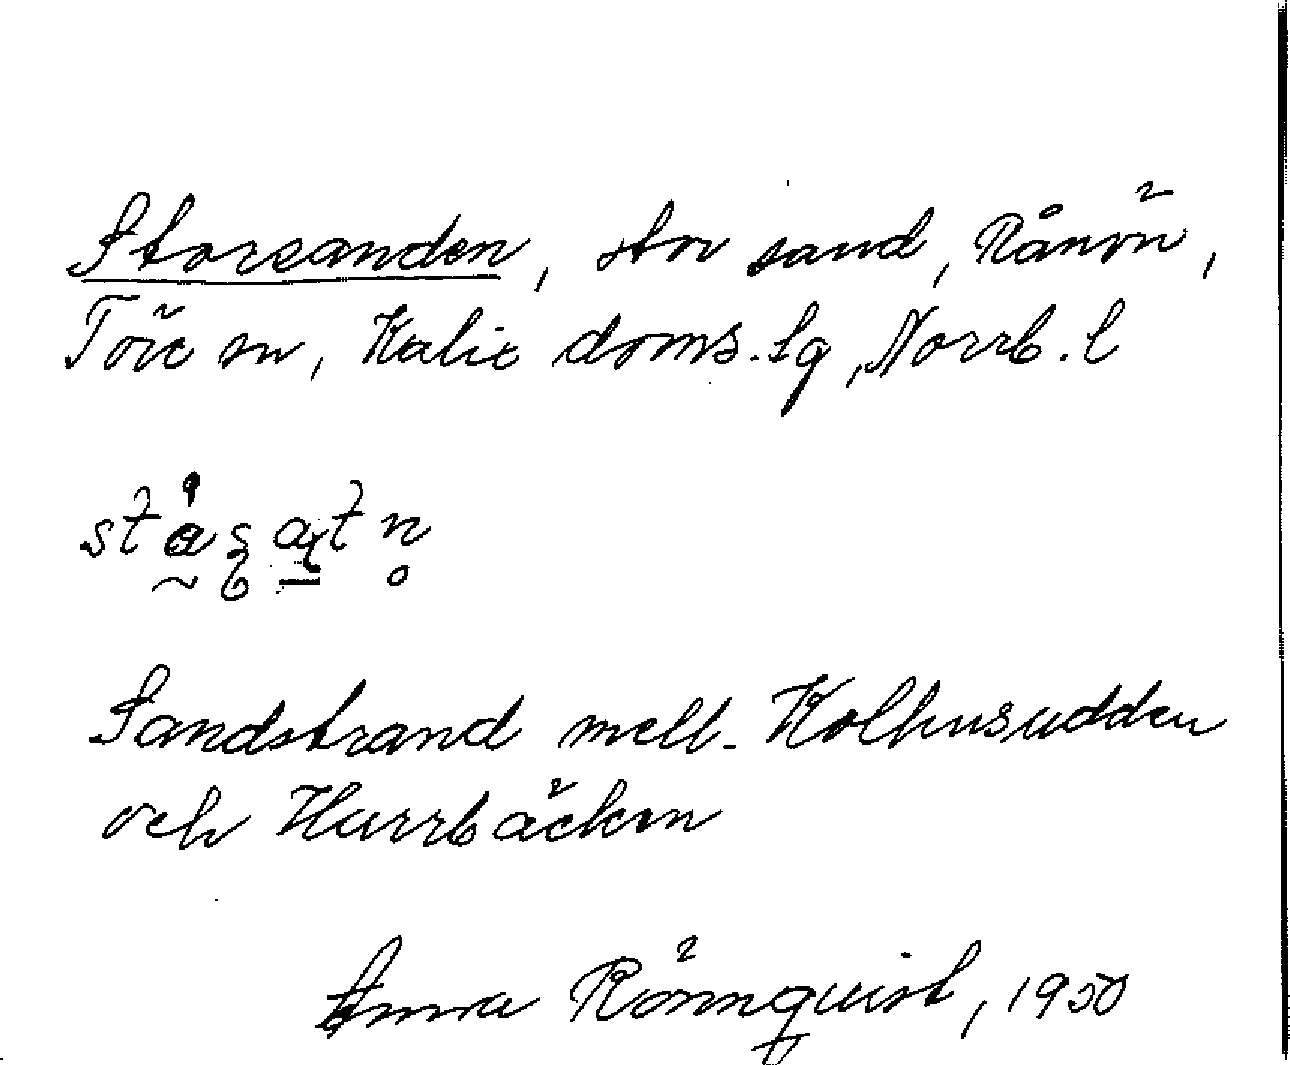 Storsanden, stor sand, Rånön,
Töre sn, Kalix doms.sg, Norrb. l
Sandstrand mell. Kolhusudden
och Hurrbäcken
Anna Rönnquist, 1950